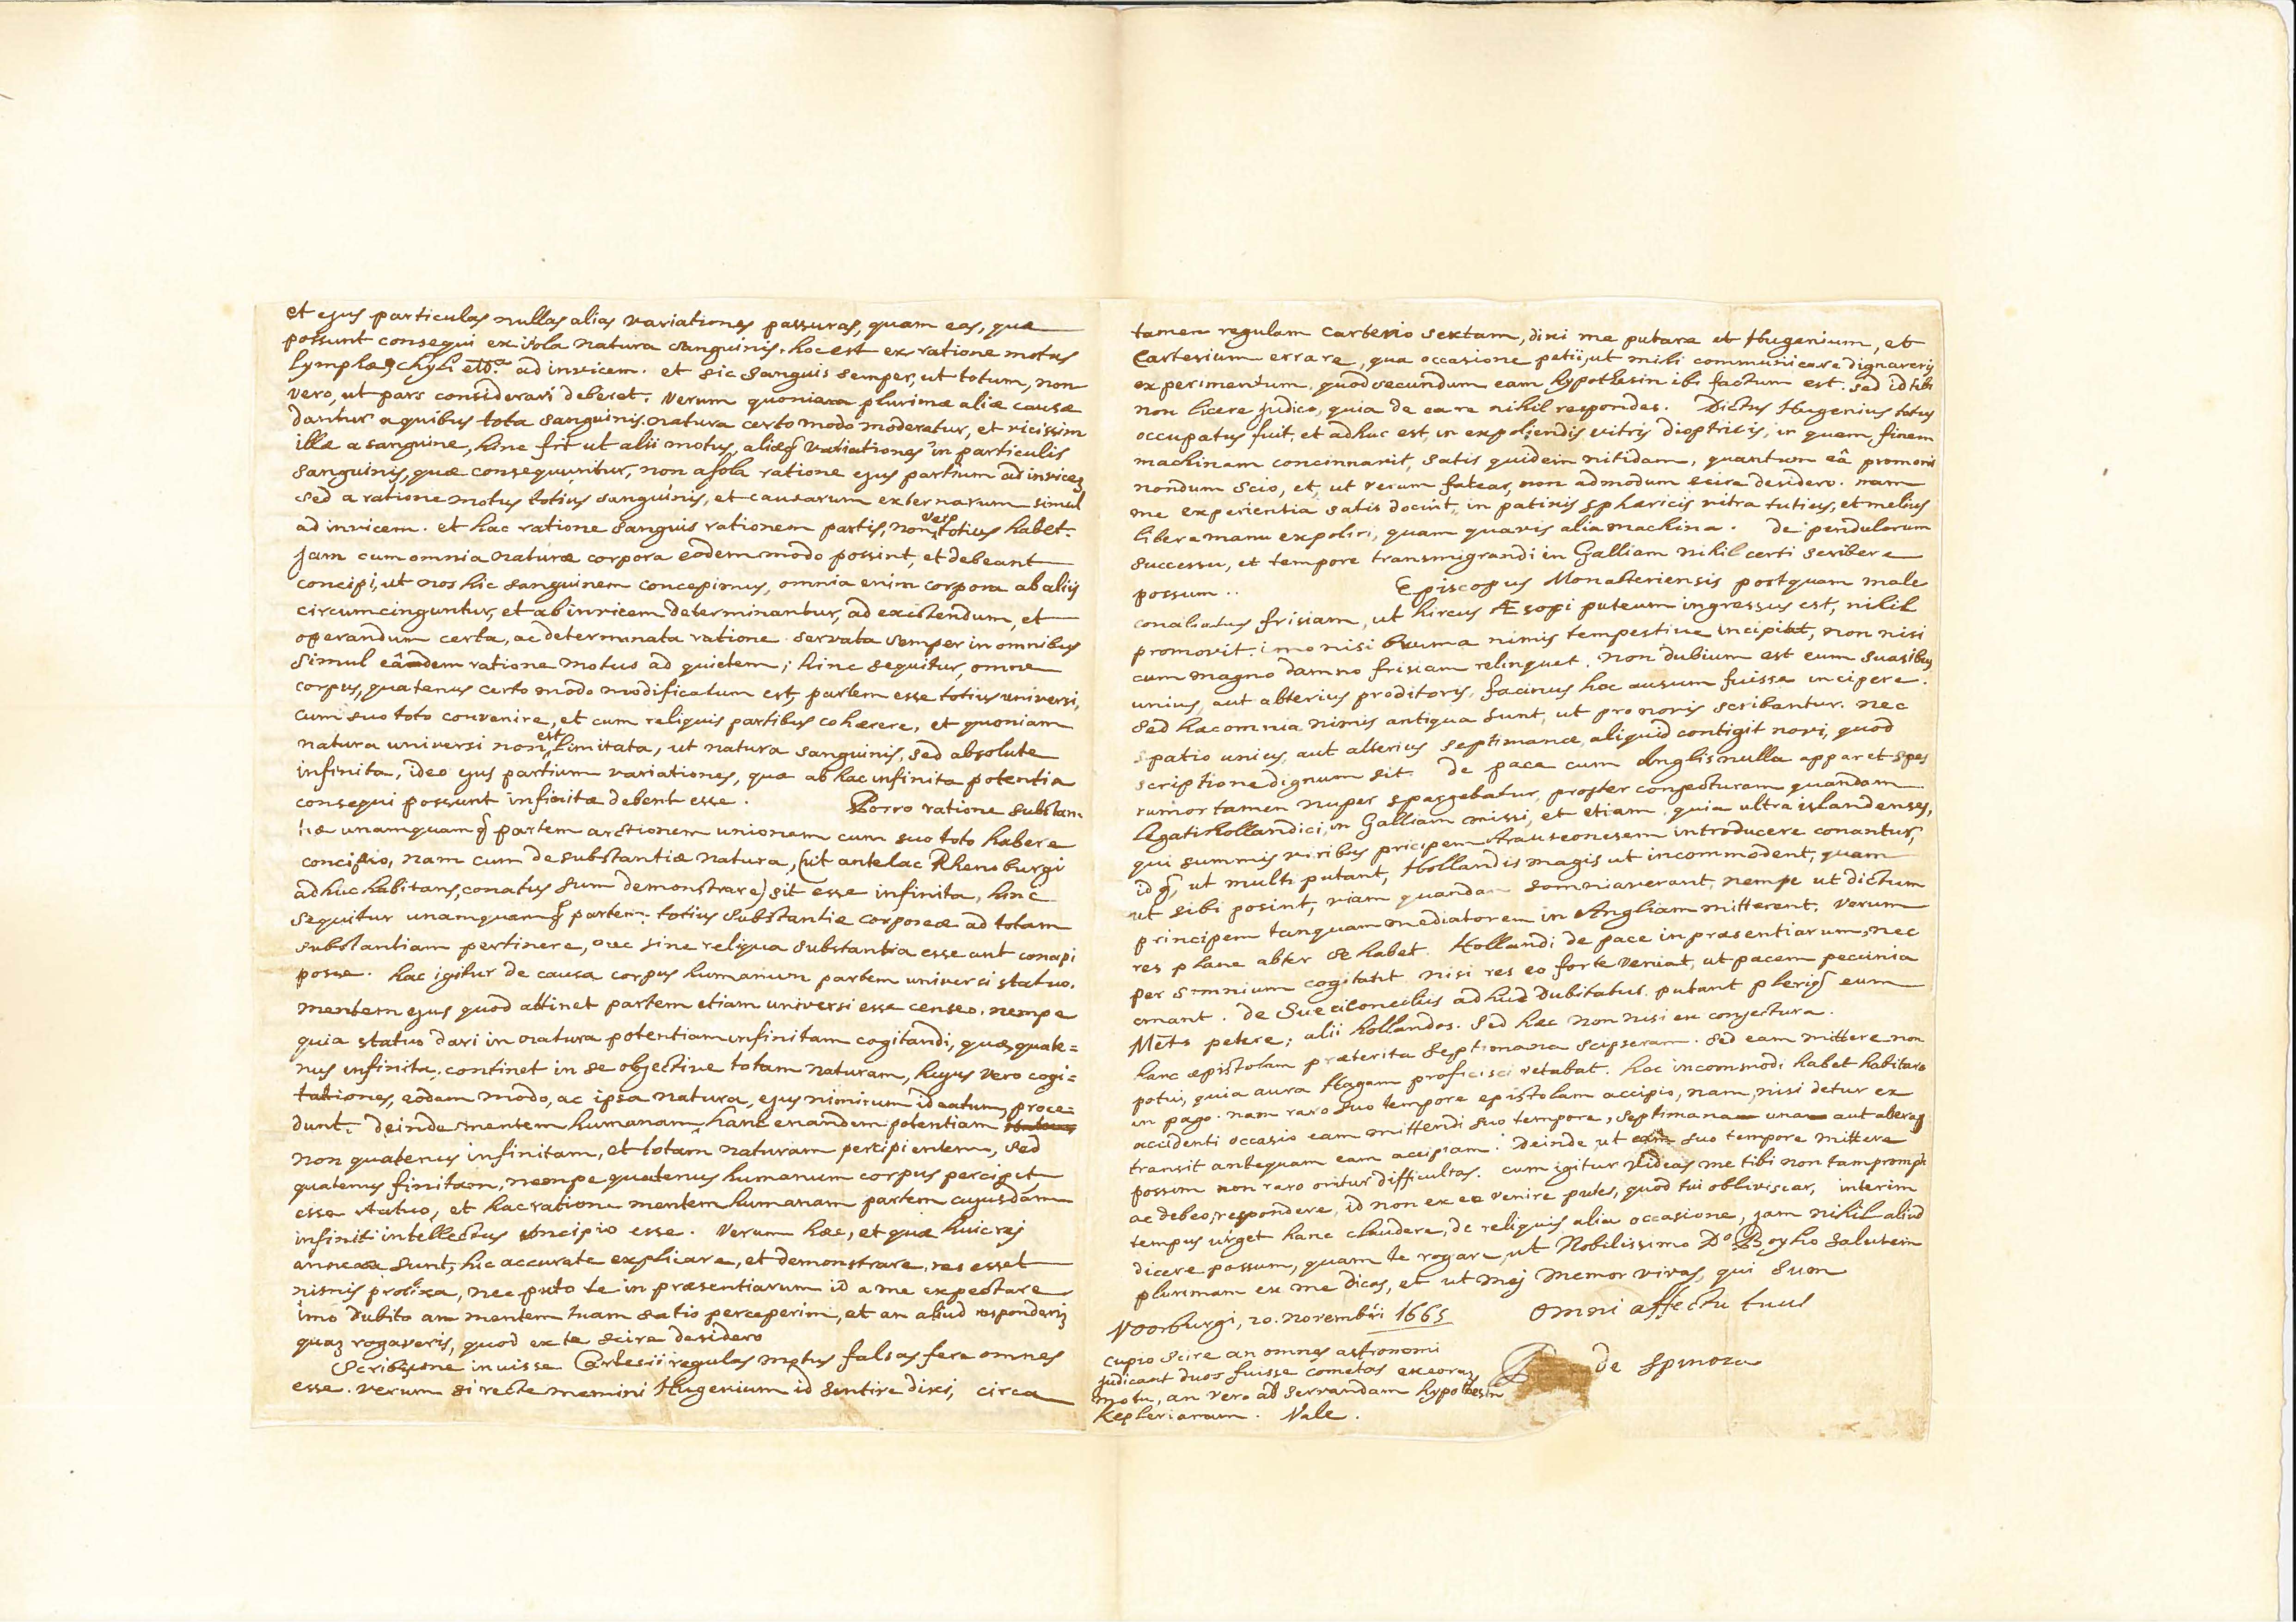 et ejus particulas nullas alias variationes passuras, quam eas, quæ
possunt consequi ex sola natura sanguinis. hoc est ex ratione motus
lymphæ, chyli etc.ª ad invicem. et sic sanguis semper, ut totum, non
vero, ut pars considerari deberet. verum quoniam plurimæ aliæ causæ
dantur a quibus tota sanguinis natura certo modo moderatur, et vicissim
illæ a sanguine, hinc fit ut alii motus, aliæq variationes in particulis
sanguinis, quæ consequuntur, non a sola ratione ejus partium ad invicem
sed a ratione motus totius sanguinis, et causarum externarum simul
ad invicem. et hac ratione sanguis rationem partis, non vero totius habet.
jam cum omnia naturæ corpora eodem modo possint, et debeant
concipi, ut nos hic sanguinem concepimus, omnia enim corpora ab aliis
circumcinguntur, et ab invicem determinantur, ad existendum, et
operandum certa, ac determinata ratione servata semper in omnibus
simul eâdem ratione motus ad quietem; hinc sequitur, omne
corpus, quatenus certo modo modificatum est, partem esse totius universi,
cum suo toto convenire, et cum reliquis partibus cohærere. et quoniam
natura universi non est limitata, ut natura sanguinis, sed absolute
infinita, ideo ejus partium variationes, quæ ab hac infinita potentia
consequi possunt infinitæ debent esse. Porro ratione substan
tiæ unamquamq partem arctiorem unionem cum suo toto habere
concipio, nam cum de substantiæ natura, (ut antelac Rhenoburgi
adhuc habitans, conatus sum demonstrare) sit esse infinita, hinc
sequitur unamquamq partem totius substantiæ corporeæ ad totam
substantiam pertinere, nec sine reliqua substantia esse aut concipi
posse. hac igitur de causa corpus humanum partem universi statuo.
mentem ejus quod attinet partem etiam universi esse censeo. nempe
quia statuo dari in natura potentiam infinitam cogitandi, quæ, quate=
nus infinita, continet in se objective totam naturam, hujus vero cogi=
tationes, eodem modo, ac ipsa natura, ejus nimirum ideatum, proce=
dunt. deinde mentem humanam hanc eandem potentiam
non quatenus infinitam, et totam naturam percipientem, sed
quatenus finitam, nempe quatenus humanum corpus percipit
esse statuo, et hac ratione mentem humanam partem cujusdam
infiniti intellectus concipio esse. verum hæc, et quæ huic rei
annexa sunt, hic accurate explicare, et demonstrare, res esset
nimis prolixa, nec puto te in præsentiarum id a me expectare
imo dubito an mentem tuam satis perceperim, et an aliud responderim
quam rogaveris, quod ex te scire desidero
Scribis me inuisse Cartesii regulas motus falsas fere omnes
esse. verum si recte memini Hugenium id sentire dixi, circa
tamen regulam cartesio sextam, dixi me putare et Hugenium, et
Cartesium errare, qua occasione petii, ut mihi communicare digneris
experimentum, quod secundum eam hypothesin ibi factum est. sed id tibi
non licere judico, quia de ea re nihil respondes. Dictus Hugenius totus
occupatus fuit, et adhuc est, in expoliendis vitris dioptricis, in quem finem
machinam concinnavit, satis quidem nitidam, quantum eâ promoverit
nondum scio, et, ut verum fatear, non admodum scire desidero. nam
me experientia satis docuit, in patinis sphæricis vitra tutius, et melius
libera manu expoliri, quam quavis alia machina. De pendulorum
successu, et tempore transmigrandi in Galliam nihil certi scribere
possum.. Episcopus Monasteriensis postquam male
conciliatus frisiam, ut hircus Æsopi puteum ingressus est, nihil
promovit. imo nisi bruma nimis tempestive incipiat, non nisi
cum magno damno frisiam relinquet. non dubium est eum suasibus
unius, aut alterius proditoris, facinus hoc ausum fuisse incipere.
sed hæc omnia nimis antiqua sunt, ut pro novis scribantur. nec
spatio unius, aut alterius septimanæ aliquid contigit novi, quod
scriptione dignum sit. De pace cum Anglis nulla apparet spes
rumor tamen nuper spargebatur, propter conjecturam quandam
legati hollandici, in Galliam missi, et etiam, quia ultra islandenses,
qui summis viribus pricipem Arausonesem introducere conantur,
idq, ut multi putant, Hollandis magis ut incommodent, quam
ut sibi posint, viam quandam somniaverant, nempe ut dictum
principem tanquam mediatorem in Angliam mitterent. Verum
res plane alter se habet. Hollandi de pace in præsentiarum, nec
per somnium cogitant nisi res eo forte veniat, ut pacem pecunia
emant. De Sueci conciliis adhuc dubitatur. putant pleriq eum
Mets petere; alii hollandos. sed hæc non nisi ex conjectura.
hanc epistolam præterita septimana scipseram. sed eam mittere non
potui, quia aura Hagam proficisci vetabat. hac incommodi habet habitare
in pago. nam raro suo tempore epistolam accipio, nam, nisi detur ex
accidenti occasio eam mittendi suo tempore, septimana una aut altera
transit antequam eam accipiam. Deinde ut eam suo tempore mittere
possim non raro oritur difficultas. cum igitur videas me tibi non tam prompte
ac debeo, respondere, id non ex eo venire putes, quod tui obliviscar, interim
tempus urget hanc claudere, de reliquis alia occasione, jam nihil aliud
dicere possum, quam te rogare, ut Nobilissimo Dº Boylio salutem
plurimam ex me dicas, et ut mej memor vivas, qui sum
Voorburgi, 20. novembri 1665 omni affectu tuus
de Spinoza
cupio scire an omnes astronomi
judicant duos fuisse cometas ex eorum
motu, an vero ad servandam hypothesin
keplerianam. Vale.